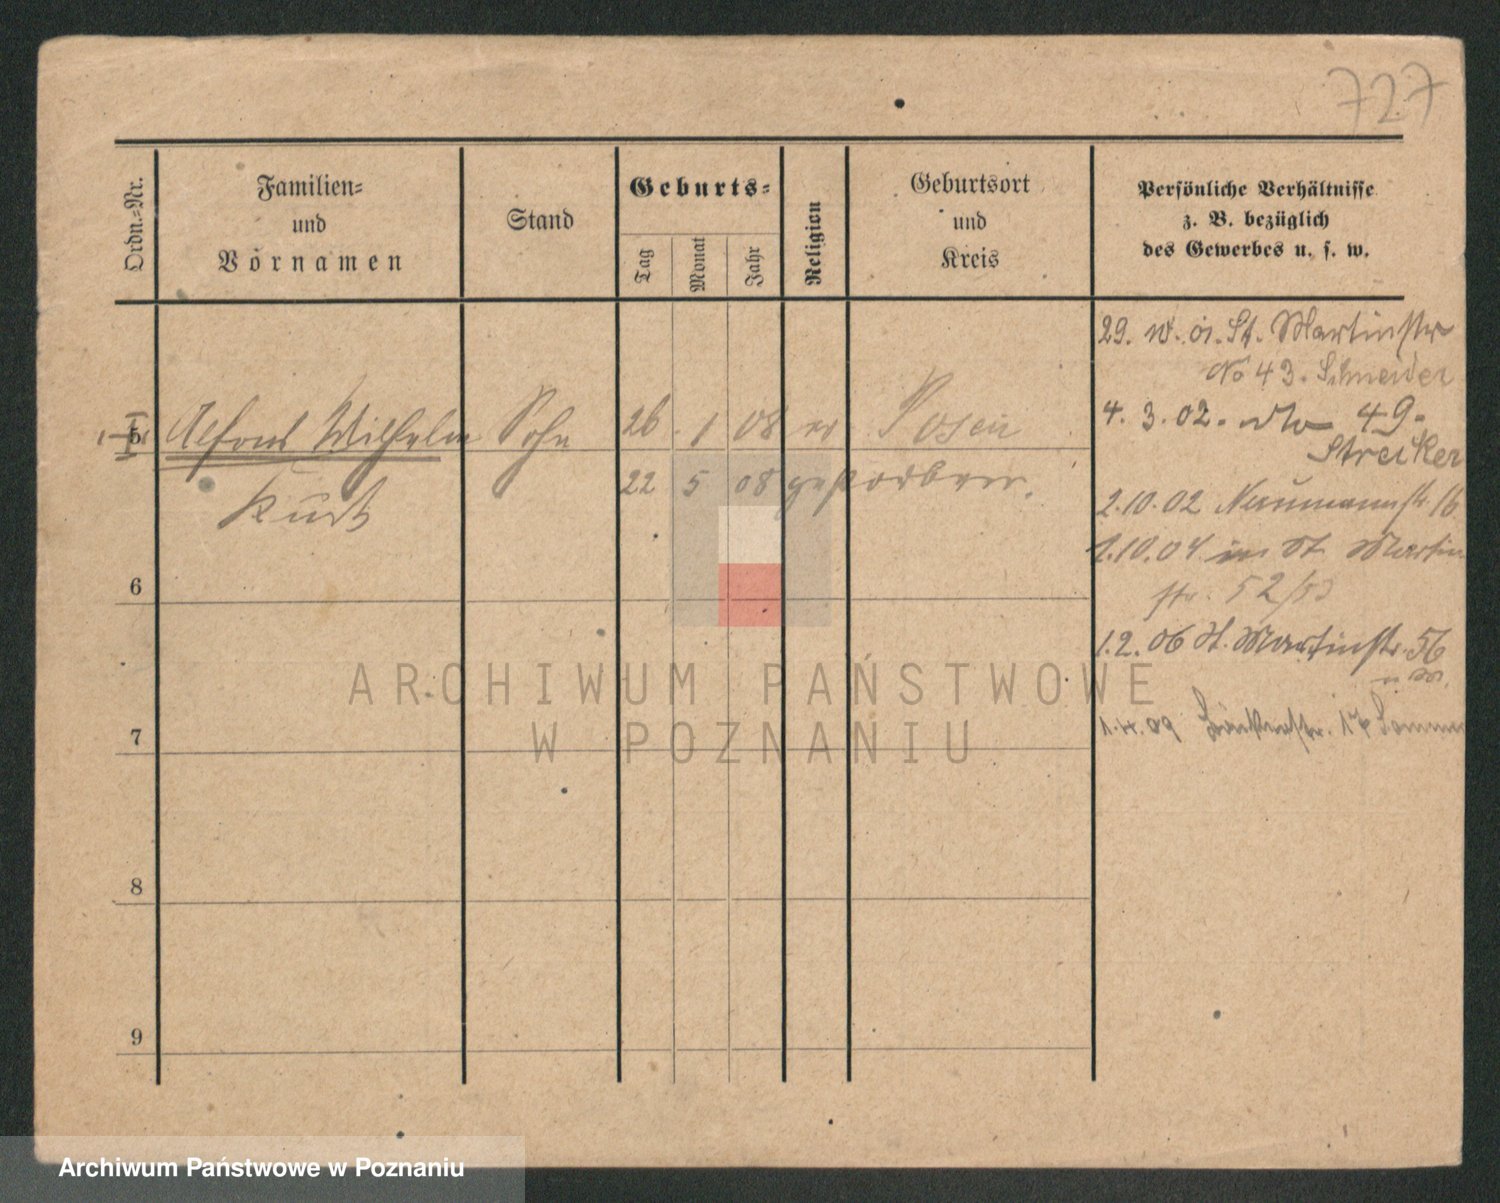 727
Ordn.=Nr.
Familien=
und
Vornamen
Stand
Geburts=
Tag
Monat
Jahr
Religion
Geburtsort
und
Kreis
Persönliche Verhältnisse
z. B. bezüglich
des Gewerbes u. s. w.
5 Alfons Wilhelm Sohn 26 1 08 Posen
Kurt 22 5 08 gestorben.
6
7
8
9
29. St. Martinstr
No 43. Schneider
4. 3. 02. 49.
Streiker
2.10.02 Naumannstr 16
1.10.04 St Martin
str. 52/53
1.2.06 St. Martinstr. 56
1.4.09 17
ARCHIWUM PAŃSTWOWE
W POZNANIU
Archiwum Państwowe w Poznaniu